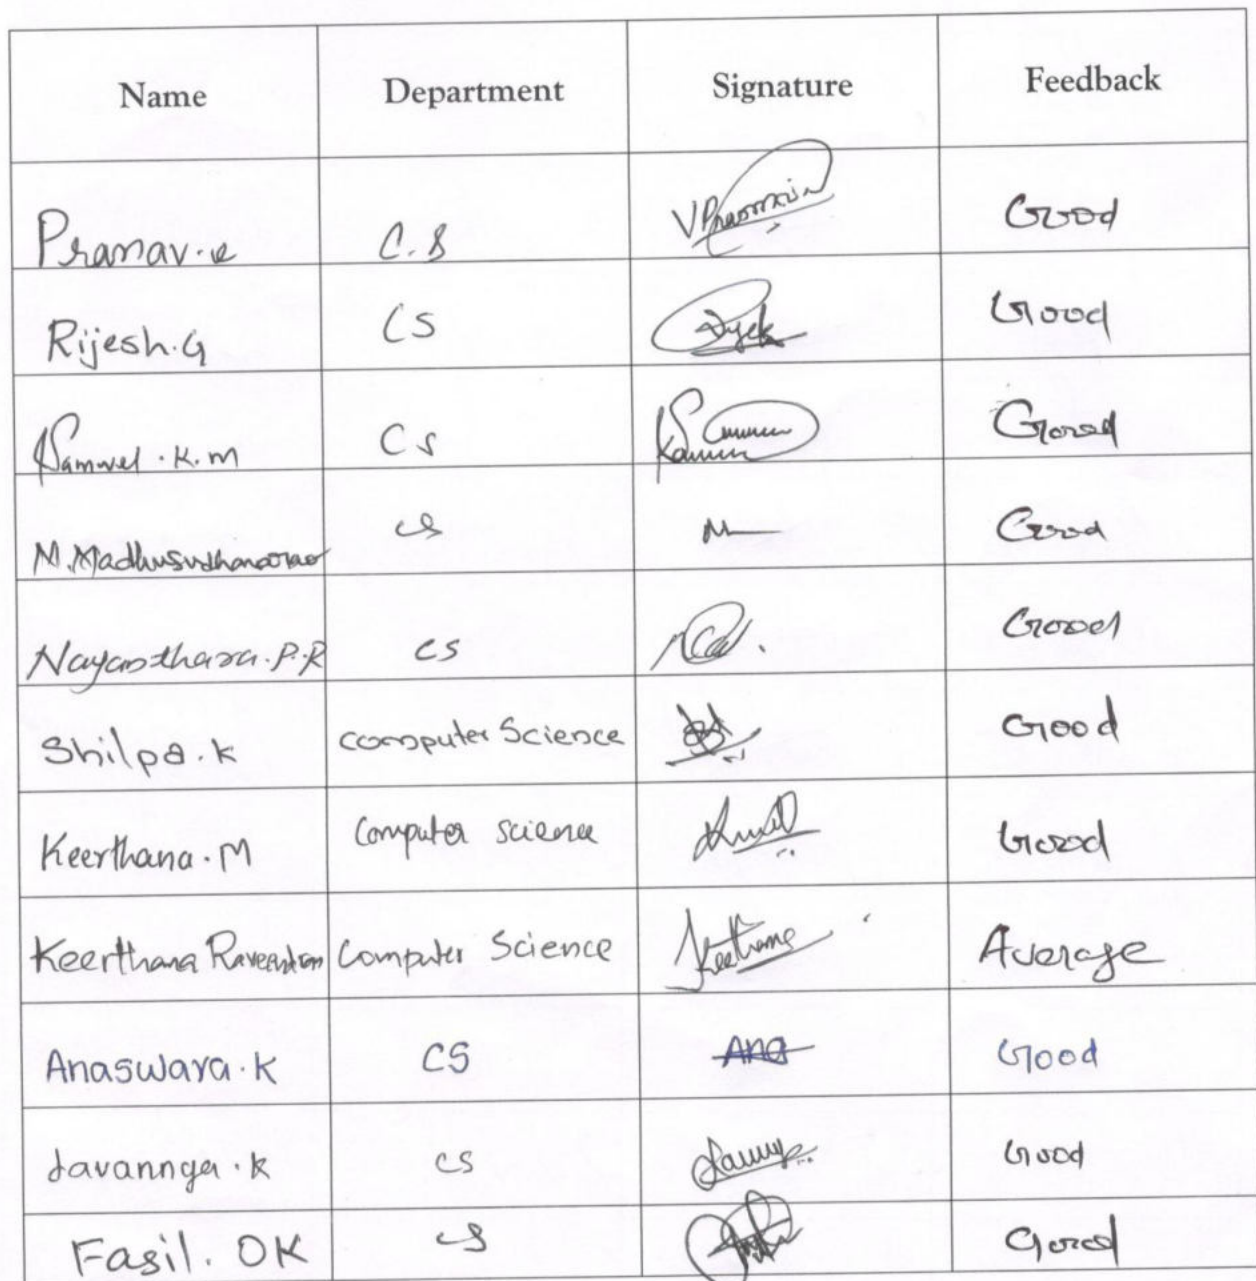 Name Department Signature Feedback
Pranav.v C.S Good
Rijesh.G CS Good
Samuel.K.M CS Good
M.Madhusudhanarao CS M Good
Nayansthara.P.R CS Good
Shilpa.K Computer Science Good
Keerthana.M Computer Science Good
Keerthana Raveendran Computer Science Keethana Average
Anaswara.K CS Ana Good
Lavannya.K CS Good
Fasil.OK CS Good